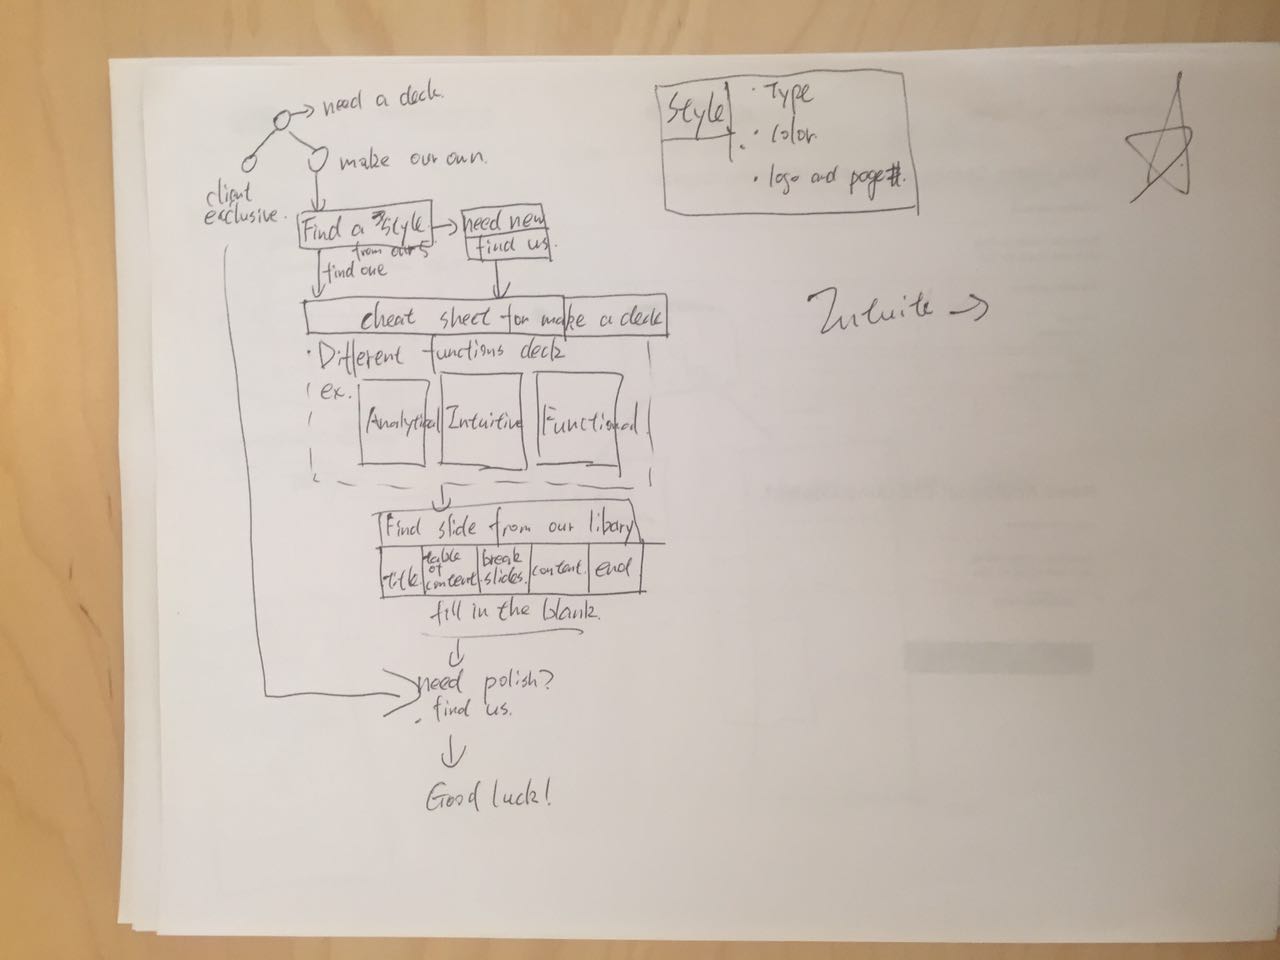 need a deck.
make our own.
client
exclusive.
Find a Style
from our 5
find one
need new
find us.
cheat sheet for make a deck
· Different functions deck
ex.
Analytical
Intuitive
Functional
Find slide from our libary
title.
table
of
content
break
slides.
content.
end
fill in the blank.
need polish?
find us.
Good luck!
Style
· Type
· Color
· logo and page#.
Intuite →